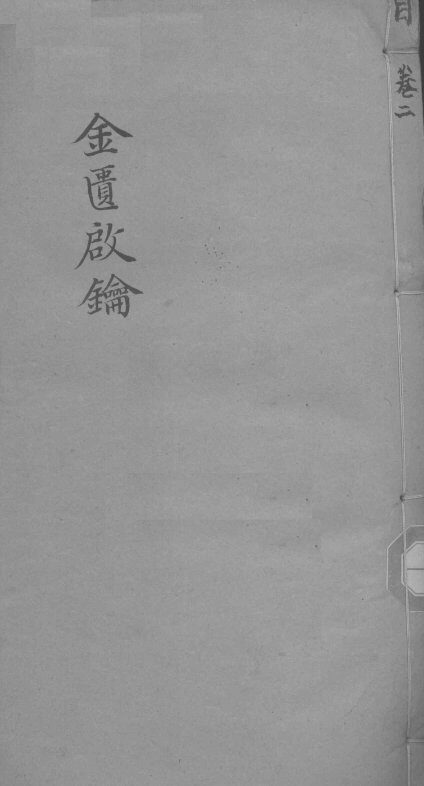 目 卷二
金匱啟鑰